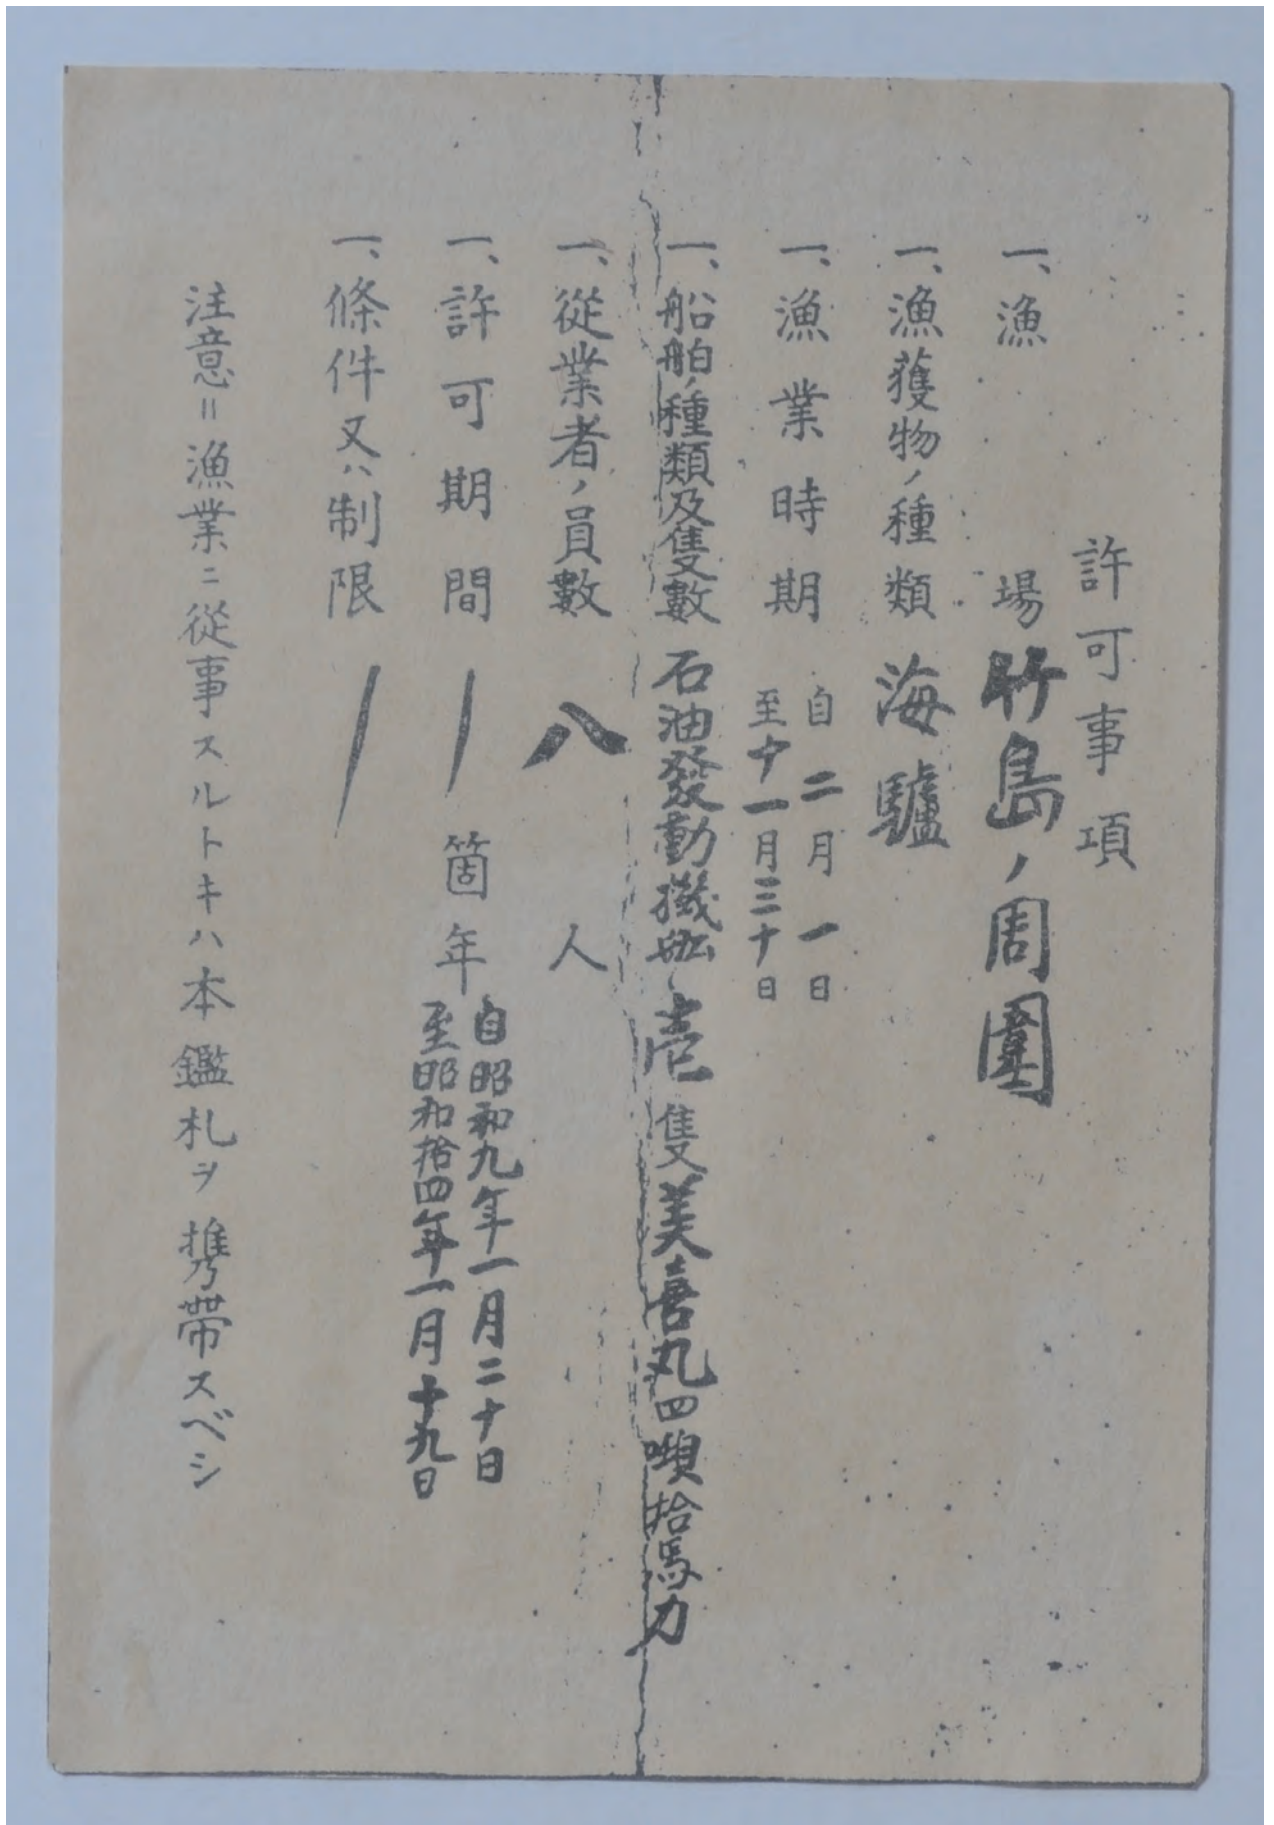 許可事項
一、漁場 竹島ノ周圍
一、漁獲物ノ種類 海驢
一、漁業時期 自二月一日
至十一月三十日
一、船舶ノ種類及隻數 石油發動機船 壱隻 美喜丸四噸拾馬力
一、從業者ノ員數 八人
一、許可期間 箇年 自昭和九年一月二十日
至昭和拾四年一月十九日
一、條件又ハ制限
注意=漁業ニ從事スルトキハ本鑑札ヲ携帶スベシ